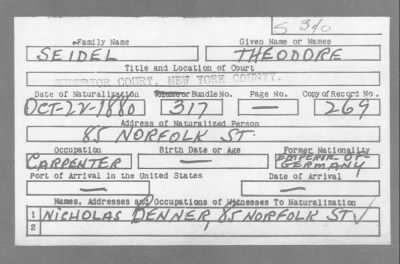 S 340
Family Name Given Name or Names
SEIDEL THEODORE
Title and Location of Court
SUPERIOR COURT, NEW YORK COUNTY.
Date of Naturalization Volume or Bundle No. Page No. Copy of Record No.
OCT-22-1880 317 — 269
Address of Naturalized Person
85 NORFOLK ST.
Occupation Birth Date or Age Former Nationality
CARPENTER — EMPEROR OF GERMANY
Port of Arrival in the United States Date of Arrival
— —
Names, Addresses and Occupations of Witnesses To Naturalization
1 NICHOLAS BENNER, 85 NORFOLK ST √
2